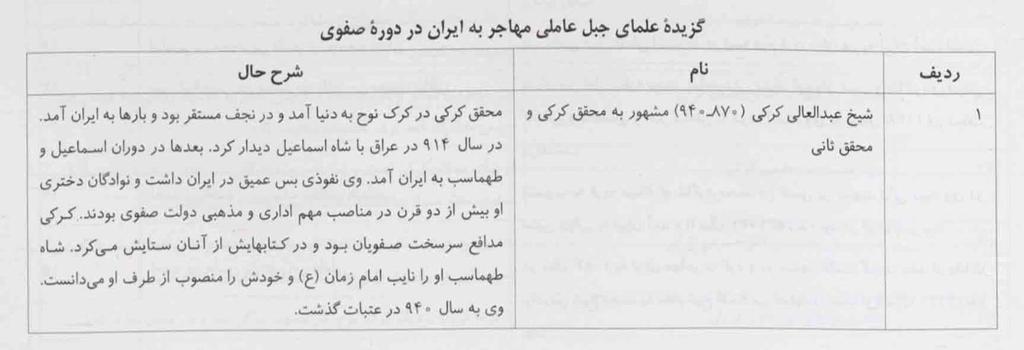 گزیدهٔ علمای جبل عاملی مهاجر به ایران در دورهٔ صفوی
ردیف
نام
شرح حال
۱
شیخ عبدالعالی کرکی (۸۷۰ـ۹۴۰) مشهور به محقق کرکی و
محقق ثانی
محقق کرکی در کرک نوح به دنیا آمد و در نجف مستقر بود و بارها به ایران آمد.
در سال ۹۱۴ در عراق با شاه اسماعیل دیدار کرد. بعدها در دوران اسماعیل و
طهماسب به ایران آمد. وی نفوذی بس عمیق در ایران داشت و نوادگان دختری
او بیش از دو قرن در مناصب مهم اداری و مذهبی دولت صفوی بودند. کرکی
مدافع سرسخت صفویان بود و در کتابهایش از آنان ستایش می‌کرد. شاه
طهماسب او را نایب امام زمان (ع) و خودش را منصوب از طرف او می‌دانست.
وی به سال ۹۴۰ در عتبات گذشت.